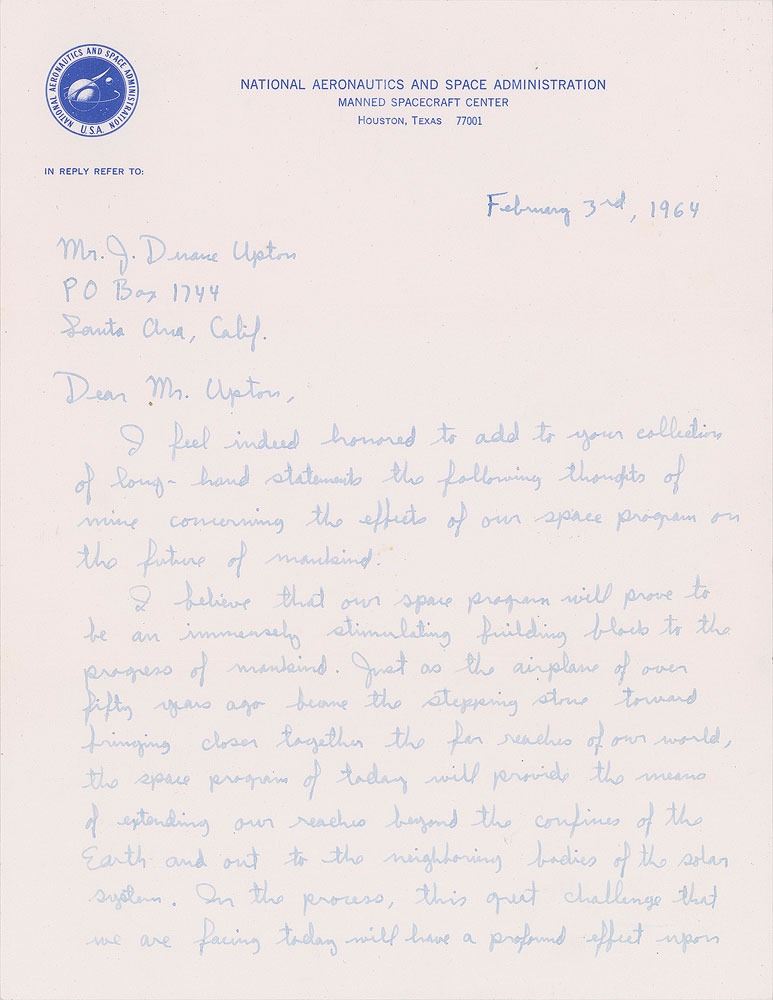 NATIONAL AERONAUTICS AND SPACE ADMINISTRATION
U.S.A.
NATIONAL AERONAUTICS AND SPACE ADMINISTRATION
MANNED SPACECRAFT CENTER
HOUSTON, TEXAS 77001
IN REPLY REFER TO:
February 3rd, 1964
Mr. J. Duane Upton
PO Box 1744
Santa Ana, Calif.
Dear Mr. Upton,
I feel indeed honored to add to your collection
of long-hand statements the following thoughts of
mine concerning the effects of our space program on
the future of mankind.
I believe that our space program will prove to
be an immensely stimulating building block to the
progress of mankind. Just as the airplane of over
fifty years ago became the stepping stone toward
bringing closer together the far reaches of our world,
the space program of today will provide the means
of extending our reaches beyond the confines of the
Earth and out to the neighboring bodies of the solar
system. In the process, this great challenge that
we are facing today will have a profound effect upon